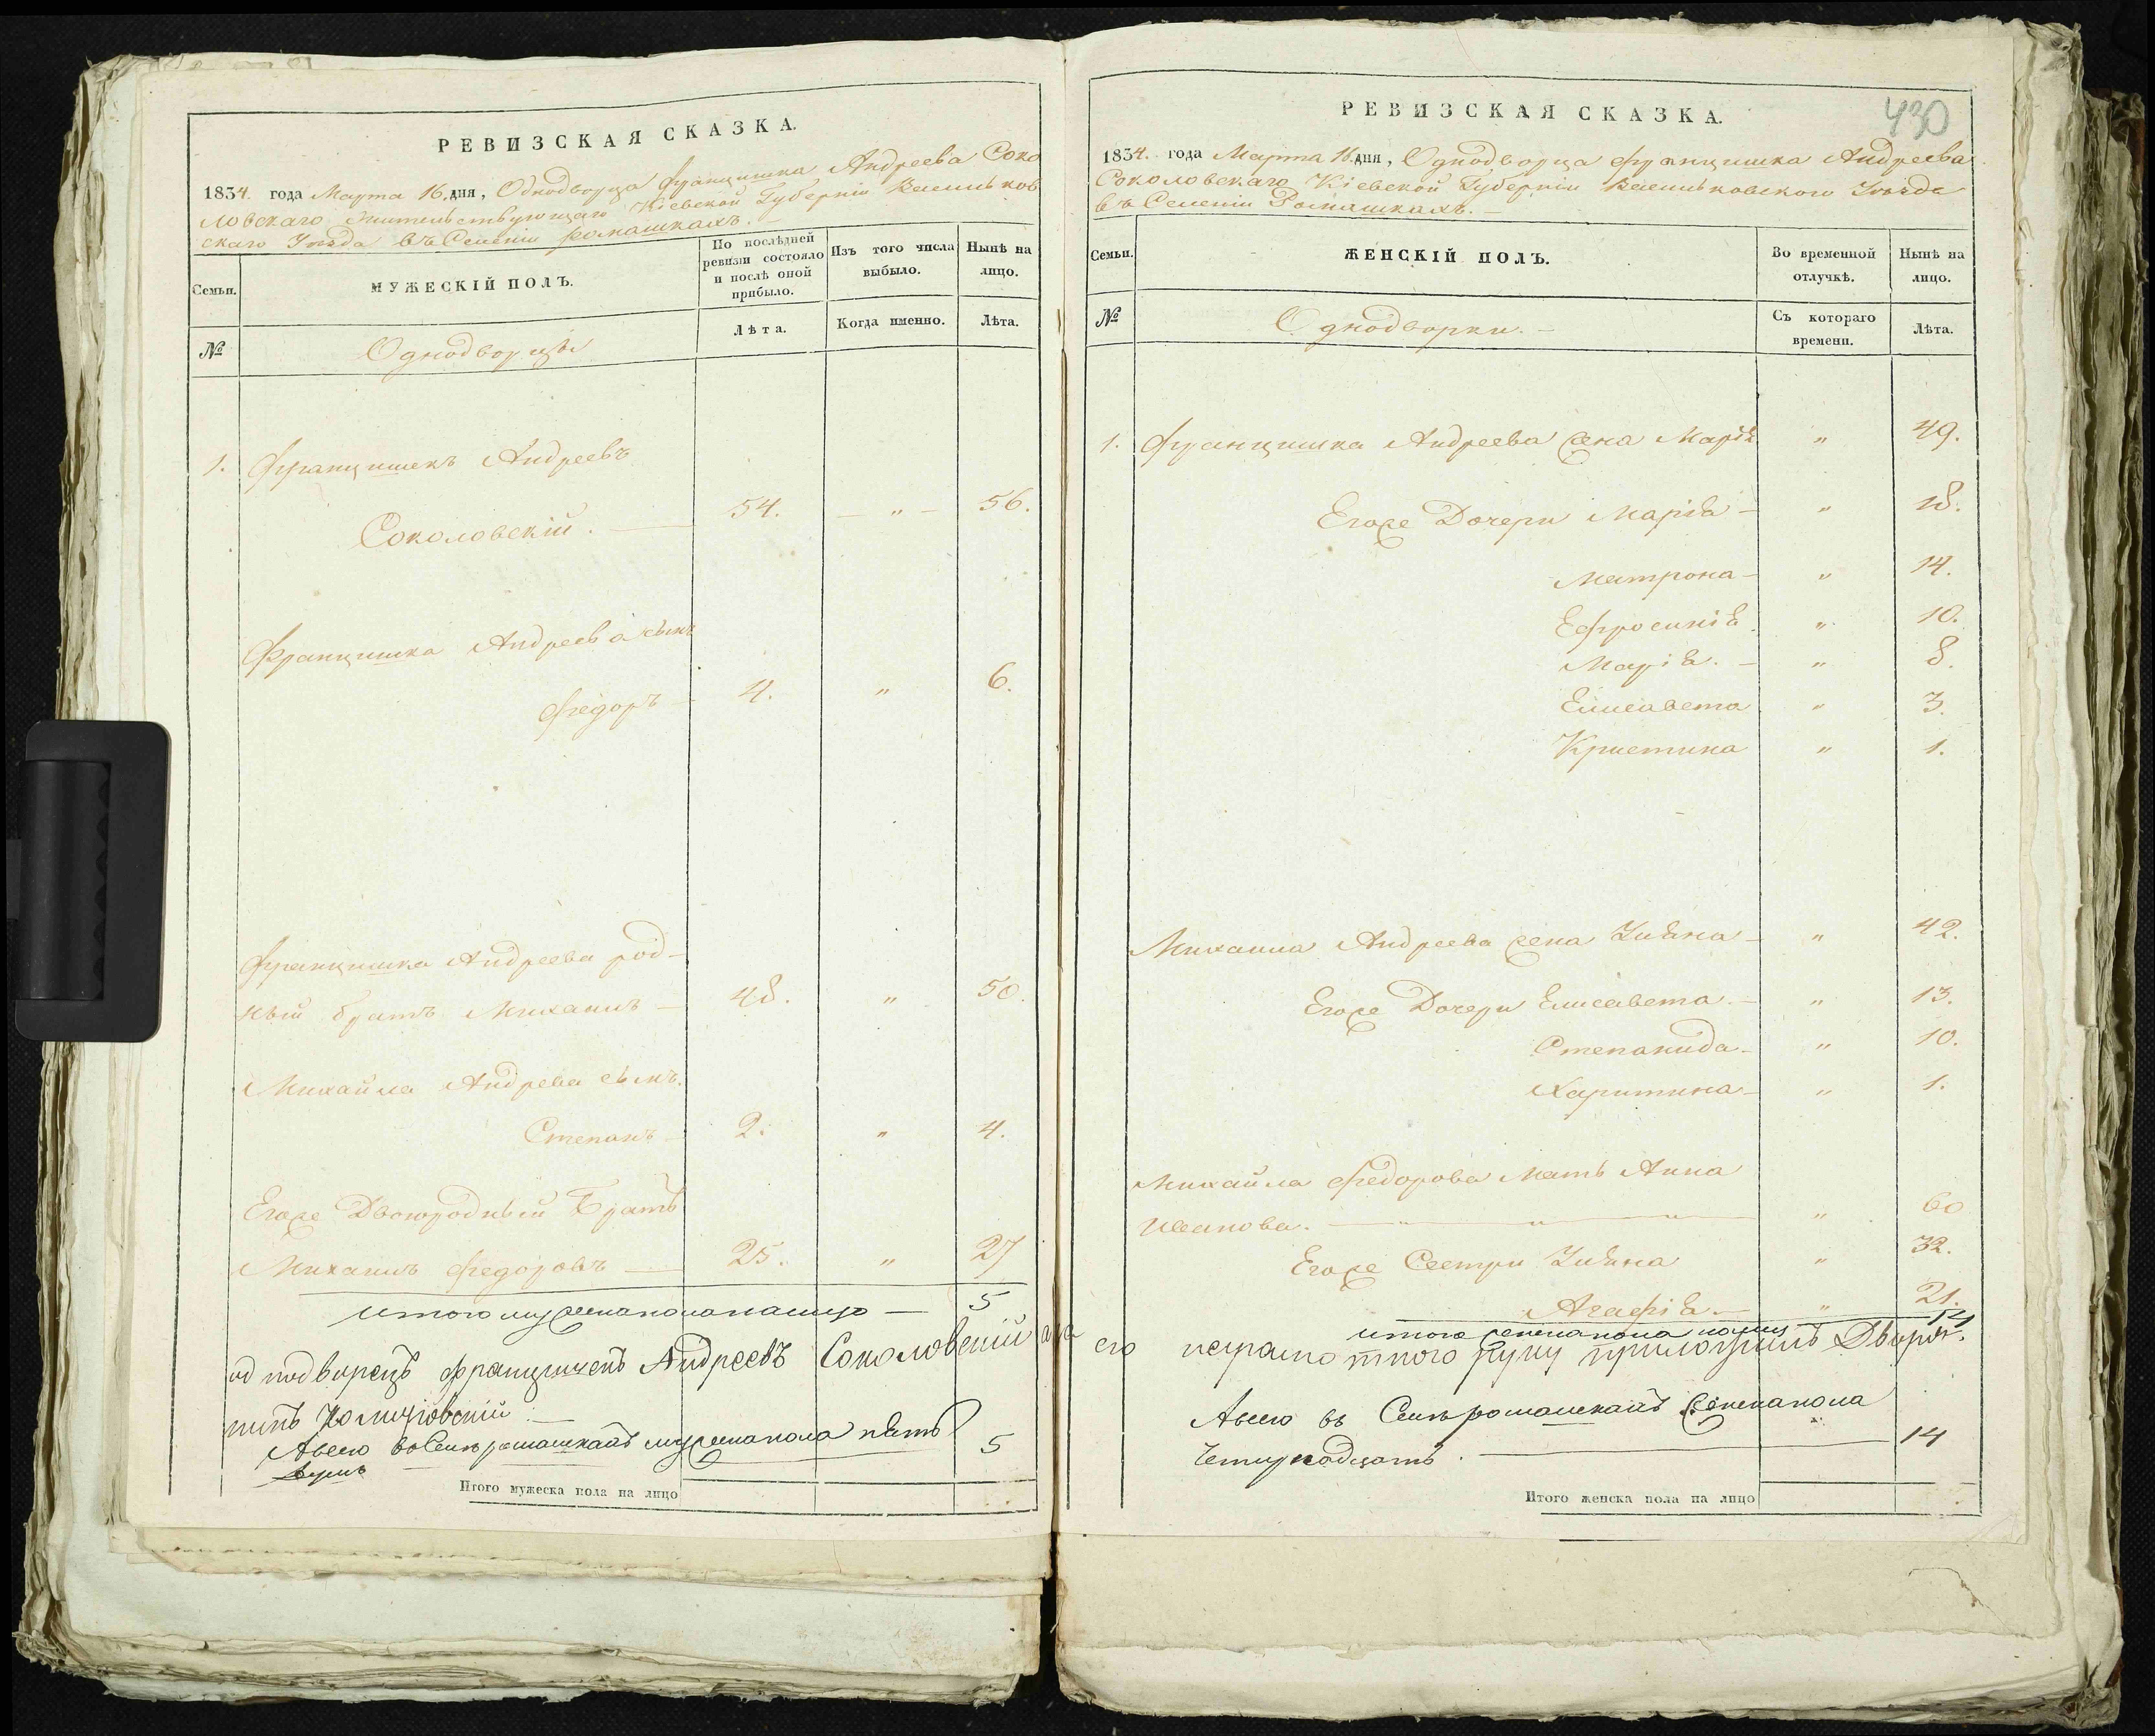 РЕВИЗСКАЯ СКАЗКА.
1834. года Марта 16. дня, Однодворца Францишка Андреева Соко
ловскаго жительствующаго Кіевской Губерніи Васильков
скаго Уезда въ Селеніи Ромашкахъ. —
Семьи.
МУЖЕСКІЙ ПОЛЪ.
По послѣдней ревизіи состояло и послѣ оной прибыло.
Изъ того числа выбыло.
Нынѣ на лицо.
№
Однодворцы
Лѣта.
Когда именно.
Лѣта.
1. Францишекъ Андреевъ
Соколовскій. — 54. — „ — 56.
Францишка Андреева сынъ
Федоръ — 4. „ 6.
Францишка Андреева род-
ный братъ Михаилъ — 48. „ 50.
Михайла Андрева сынъ.
Степанъ — 2. „ 4.
Егоже Двоюродный Братъ
Михаилъ Федоровъ — 25. „ 27
итого мужеска пола налицо — 5
однодворецъ Францишекъ Андреевъ Соколовский а за
нинъ
Авсего вСеле ромашкахъ мужеска пола пять 5
душъ
Итого мужеска пола на лицо
430
РЕВИЗСКАЯ СКАЗКА.
1834. года Марта 16. дня, Однодворца Францишка Андреева
Соколовскаго Кіевской Губерніи Васильковского Уезда
въ Селеніи Ромашкахъ. —
Семьи.
ЖЕНСКІЙ ПОЛЪ.
Во временной отлучкѣ.
Нынѣ на лицо.
№
Однодворки. —
Съ котораго времени.
Лѣта.
1. Францишка Андреева жена Марія „ 49.
Егоже Дочери Марія — „ 18.
Матрона — „ 14.
Ефросинія. „ 10.
Марія. — „ 8.
Елисавета „ 3.
Кристина „ 1.
Михаила Андреева жена Уліяна — „ 42.
Егоже Дочери Елисавета. — „ 13.
Степанида — „ 10.
Харитина — „ 1.
Михайла Федорова Мать Анна
Иванова. — „ 60
Егоже Сестри Уліяна „ 32.
Агафія — „ 21.
итого женска пола налицо 14
его неграмотного руку приложилъ Дворя.
Авсего въ Селе ромашкахъ женска пола
четирнадцать. — 14
Итого женска пола на лицо